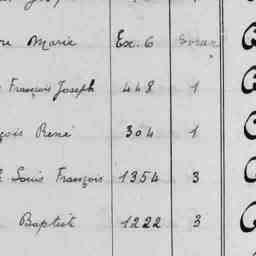 Marie Ex. 6
François Joseph 448 1
René 304 1
Louis François 1354 3
Baptiste 1222 3